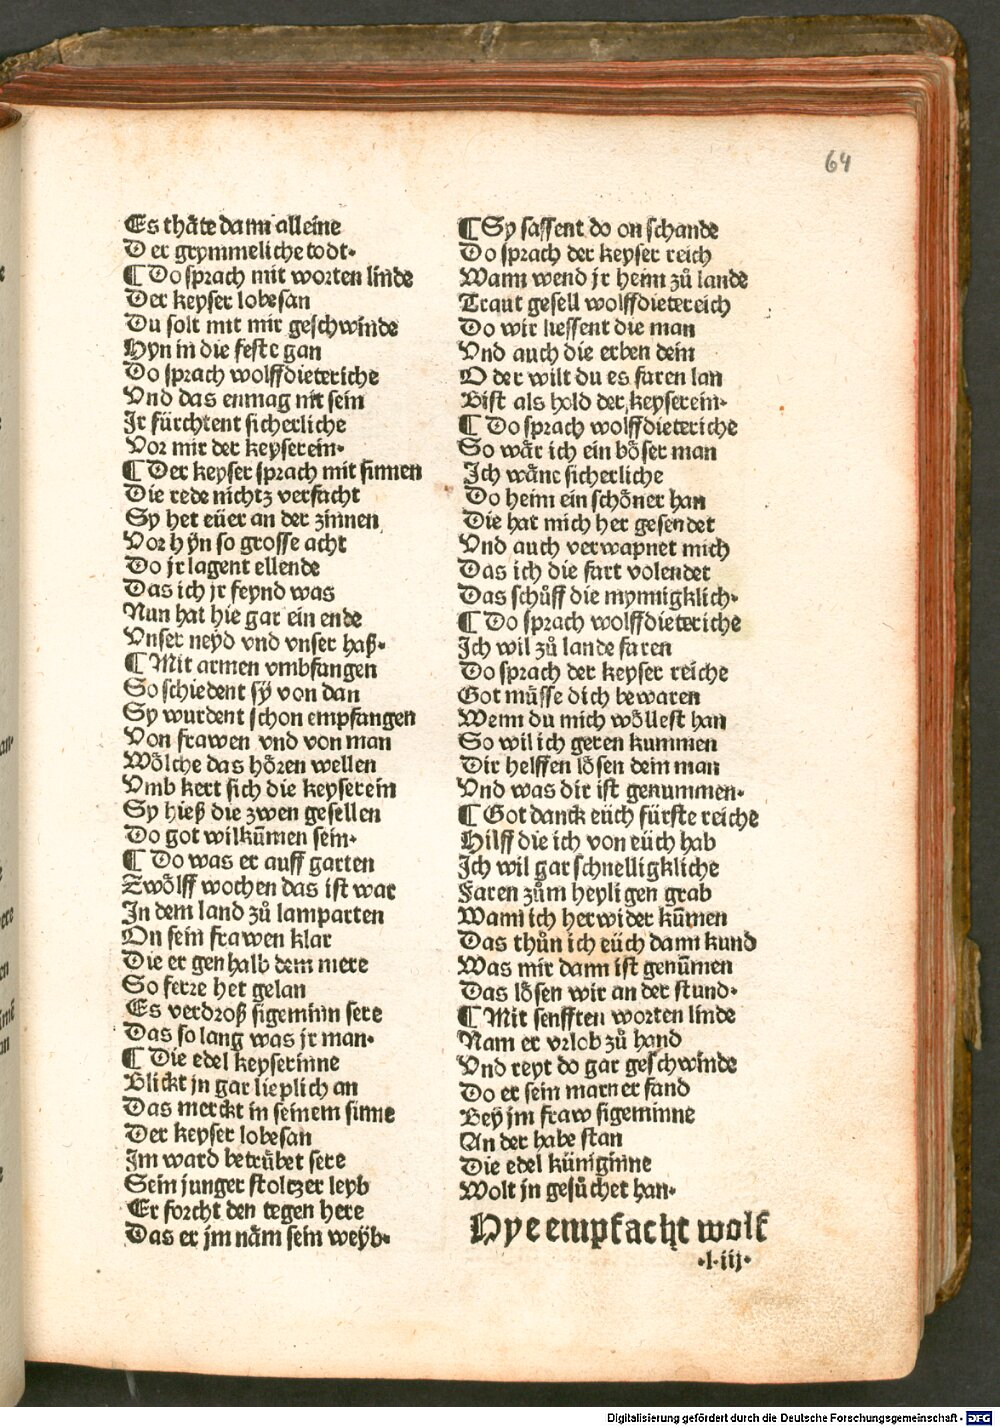 64
Es thäte dann alleine
Der grymmeliche todt.
¶ Do sprach mit worten linde
Der keyser lobesan
Du solt mit mir geschwinde
Hyn in die feste gan
Do sprach wolffdieteriche
Vnd das enmag nit sein
Ir fürchtent sicherliche
Vor mir der keyserein.
¶ Der keyser sprach mit sinnen
Die rede nichtz verfacht
Sy het eüer an der zinnen
Vor hÿn so grosse acht
Do jr lagent ellende
Das ich jr feynd was
Nun hat hie gar ein ende
Vnser neyd vnd vnser haß.
¶ Mit armen vmbfangen
So schiedent sÿ von dan
Sy wurdent schon empfangen
Von frawen vnd von man
Wölche das hören wellen
Vmb kert sich die keyserein
Sy hieß die zwen gesellen
Do got wilkūmen sein.
¶ Do was er auff garten
Zwölff wochen das ist war
In dem land zů lamparten
On sein frawen klar
Die er gen halb dem mere
So ferre het gelan
Es verdroß sigeminn sere
Das so lang was jr man.
¶ Die edel keyserinne
Blickt jn gar lieplich an
Das merckt in seinem sinne
Der keyser lobesan
Im ward betrübet sere
Sein junger stoltzer leyb
Er forcht den tegen here
Das er jm näm sein weÿb.
¶ Sy sassent do on schande
Do sprach der keyser reich
Wann wend jr heim zů lande
Traut gesell wolffdietereich
Do wir liessent die man
Vnd auch die erben dein
Oder wilt du es faren lan
Bist als hold der keyserein.
¶ Do sprach wolffdieteriche
So wär ich ein böser man
Ich wäne sicherliche
Do heim ein schöner han
Die hat mich her gesendet
Vnd auch verwapnet mich
Das ich die fart volendet
Das schůff die mynnigklich.
¶ Do sprach wolffdieteriche
Ich wil zů lande faren
Do sprach der keyser reiche
Got müsse dich bewaren
Wenn du mich wöllest han
So wil ich geren kummen
Dir helffen lösen dein man
Vnd was dir ist genummen.
¶ Got danck eüch fürste reiche
Hilff die ich von eüch hab
Ich wil gar schnelligkliche
Faren zům heyligen grab
Wann ich her wider kūmen
Das thůn ich eüch dann kund
Was mir dann ist genūmen
Das lösen wir an der stund.
¶ Mit senfften worten linde
Nam er vrlob zů hand
Vnd reyt do gar geschwinde
Do er sein marner fand
Beÿ jm fraw sigeminne
An der habe stan
Die edel küniginne
Wolt jn gesůchet han.
Hye empfacht wolf
.l.iij.
Digitalisierung gefördert durch die Deutsche Forschungsgemeinschaft - DFG